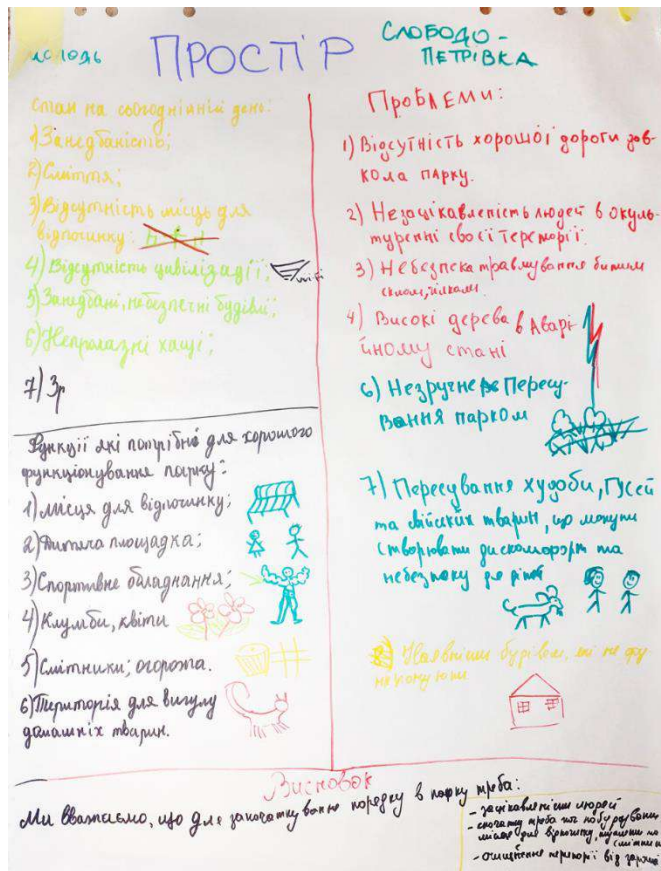 молодь
ПРОСТІР
СЛОБОДО-
ПЕТРІВКА
Стан на сьогоднішній день:
1) Занедбаність;
2) Сміття;
3) Відсутність місць для
відпочинку:
4) Відсутність цивілізації;
wi-fi
5) Занедбані, небезпечні будівлі;
6) Непролазні хащі;
7) Зр
Функції які потрібні для хорошого
функціонування парку:
1) місця для відпочинку;
2) Дитяча площадка;
3) Спортивне обладнання;
4) Клумби, квіти
5) Смітники; огорожа.
6) Територія для вигулу
домашніх тварин.
Проблеми:
1) Відсутність хорошої дороги дов-
кола парку.
2) Незацікавленість людей в окуль-
туренні своєї території.
3) Небезпека травмування битим
склом, гілками.
4) Високі дерева в Аварі-
йному стані
6) Незручне Пересу-
вання парком
7) Пересування худоби, Гусей
та свійських тварин, що можуть
створювати дискомфорт та
небезпеку для дітей
8) Наявність будівель, які не фу-
нкціонують
Висновок
Ми вважаємо, що для започаткування порядку в парку треба:
- зацікавленість людей
- спочатку треба побудувати
місце для відпочинку,
смітники
- очищення території від